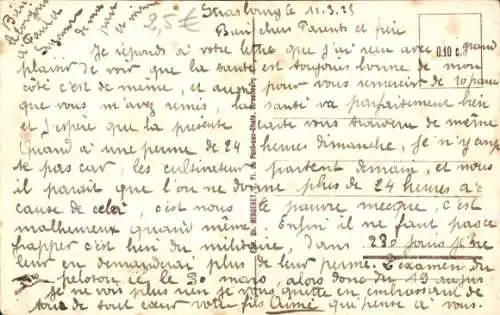 Strasbourg le 11.3.25
2,5 €
Bien chers Parents et frère
Je réponds à votre lettre que j'ai reçu avec grand
0.10 c.
plaisir de voir que la santé est toujours bonne de mon
côté c'est de même, et aussi pour vous remercier de 10 francs
que vous m'avez remis, la santé va parfaitement bien
et J'espère que la présente carte vous trouvera de même
Quand à une perme de 24 heures dimanche, Je n'y compte
pas car, les cultivateurs partent demain, et nous
il paraît que l'on ne donne plus de 24 heures à
cause de cela, c'est nous le pauvre mecque, c'est
malheureux quand même. Enfin il ne faut pas ce
frapper c'est lieu du militaire, dans 230 jours je ne
leur en demanderai plus de leur perme. L'examen du
peloton ici le 30 mars, alors donc du 19 au
je ne vois plus rien je vous quitte en embrassant de
tous de tout cœur votre fils Aimé qui pense à vous.